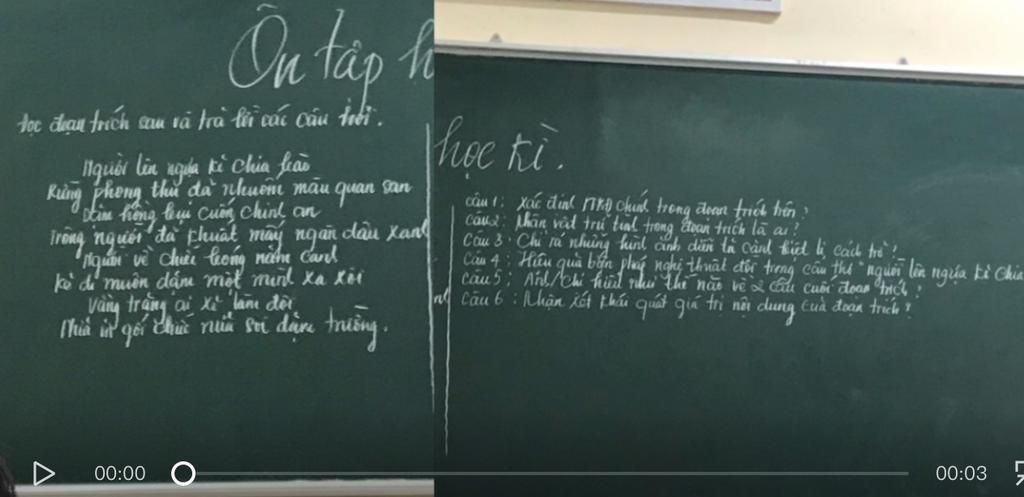 Ôn tập h
học kì.
Đọc đoạn trích sau và trả lời các câu hỏi.
Người lên ngựa kẻ chia bào
Rừng phong thu đã nhuốm màu quan san
Dặm hồng bụi cuốn chinh an
Trông người đã khuất mấy ngàn dâu xanh
Người về chiếc bóng năm canh
Kẻ đi muôn dặm một mình xa xôi
Vầng trăng ai xẻ làm đôi
Nửa in gối chiếc nửa soi dặm trường.
Câu 1: Xác định PTBĐ chính trong đoạn trích trên?
Câu 2: Nhân vật trữ tình trong đoạn trích là ai?
Câu 3: Chỉ ra những hình ảnh diễn tả cảnh biệt li, cách trở?
Câu 4: Hiệu quả biện pháp nghệ thuật đối trong câu thơ "người lên ngựa kẻ chia
Câu 5: Anh/chị hiểu như thế nào về 2 câu cuối đoạn trích?
Câu 6: Nhận xét khái quát giá trị nội dung của đoạn trích?
00:00
00:03